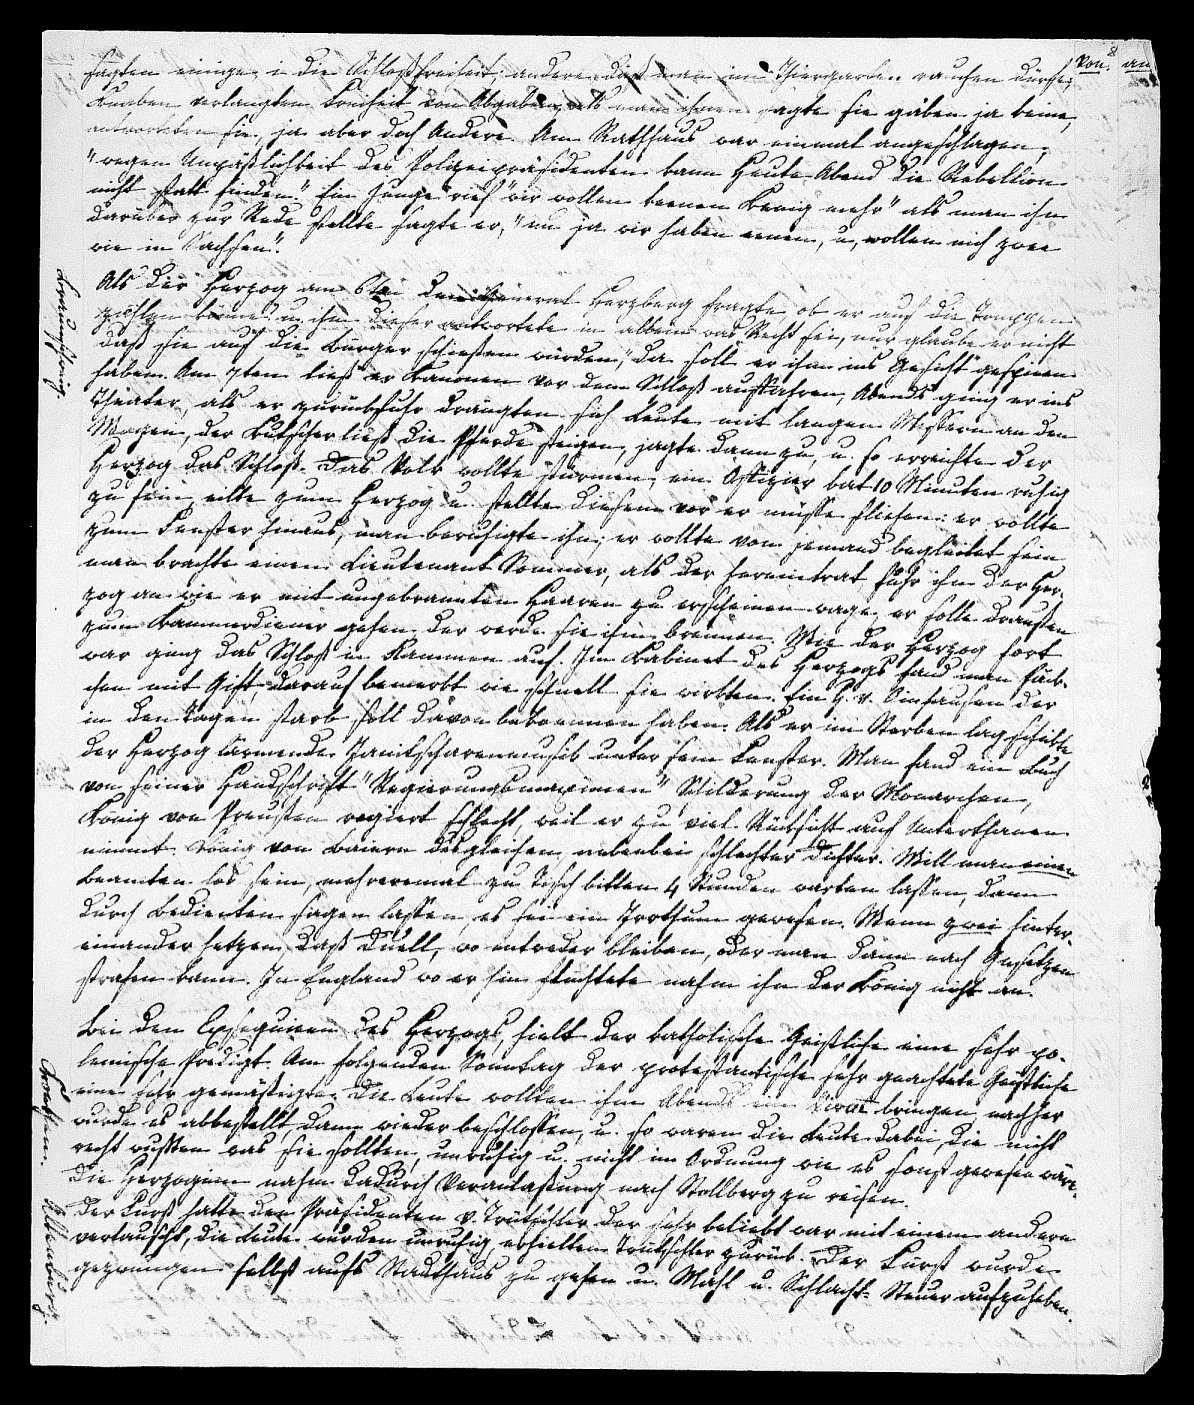 8
Von. an
sagten einige i die Schloßfreiheit, andere daß man im Thiergarten rauchen dürfe;
Knaben verlangten Freiheit von Abgaben, als man ihnen sagte sie gäben ja keine,
antworteten sie, ja aber doch Andere. Am Rathhaus war einmal angeschlagen;
"wegen Unpäßlichkeit des Polizeipräsidenten kann heute Abend die Rebellion
nicht statt finden." Ein Junge rief "wir wollen keenen Kenig mehr" als man ihn
darüber zur Rede stellte sagte er, "nu ja wir haben eenen, u, wollen nich zwee
wie in Sachsen".
Braunschweig.
Als der Herzog am 6ten den General Herzberg fragte, ob er auf die Truppen
zählen könne u. ihm dieser antwortete in allem was Recht sei, nur glaube er nicht
daß sie auf die Bürger schießen würden, da soll er ihm ins Gesicht gespieen
haben. Am 7ten ließ er Kanonen vor dem Schloß auffahren, Abends ging er ins
Theater, als er zurückfuhr drängten sich Leute mit langen Messern an den
Wagen, der Kutscher ließ die Pferde steigen, jagte dann zu, u. so erreichte der
Herzog das Schloß. Das Volk wollte stürmen, ein Offizier bat 10 Minuten ruhig
zu sein, eilte zum Herzog u. stellte diesem vor er müsse fliehen: er wollte
zum Fenster hinaus, man beruhigte ihn; er wollte von jemand begleitet sein
man brachte einen Lieutenant Sommer, als der hereintrat fuhr ihn der Her-
zog an wie er mit ungebrannten Haaren zu erscheinen wage, er solle draußen
zum Kammerdiener gehen der werde sie ihm brennen. Wie der Herzog fort
war ging das Schloß in Flammen auf. Im Kabinet des Herzogs fand man Fäß-
chen mit Gift, darauf bemerkt wie schnell sie wirkten. Ein H. v. Sinhausen der
in den Tagen starb soll davon bekommen haben. Als er im Sterben lag schickte
der Herzog lärmende Janitscharenmusik unter sein Fenster. Man fand ein Buch
von seiner Handschrift "Regierungsmaximen" Schilderung der Monarchen,
König von Preußen regiert schlecht, weil er zu viel Rücksicht auf Unterthanen
nimmt. König von Baiern desgleichen nebenbei schlechter Dichter. Will man einen
Beamten los sein, mehreremal zu Tisch bitten 4 Stunden warten lassen, dann
durch Bedienten sagen lassen, es sei ein Irrthum gewesen. Wenn zwei hinter-
einander hetzen, daß Duell, wo entweder bleiben, oder man dann nach Gesetzen
strafen kann. In England wo er hin flüchtete nahm ihn der König nicht an.
Köthen.
Bei den Exsequien des Herzogs, hielt der katholische Geistliche eine sehr po-
lemische Predigt. Am folgenden Sonntag der protestantische sehr geachtete Geistliche
eine sehr gemäßigte. Die Leute wollten ihm Abends ein Vivat bringen, nachher
wurde es abbestellt, dann wieder beschlossen, u. so waren die Leute dabei, die nicht
recht wußten was sie sollten, unruhig u. nicht in Ordnung wie es sonst gewesen wäre.
Die Herzogin nahm dadurch Veranlaßung nach Stollberg zu reisen.
Altenburg.
Der Fürst hatte den Präsidenten v. Trützschler der sehr beliebt war mit einem andern
vertauscht, die Leute wurden unruhig, erhielten Trützschler zurück. Der Fürst wurde
gezwungen selbst aufs Stadthaus zu gehen u. Mahl u. Schlacht- Steuer aufzuheben.